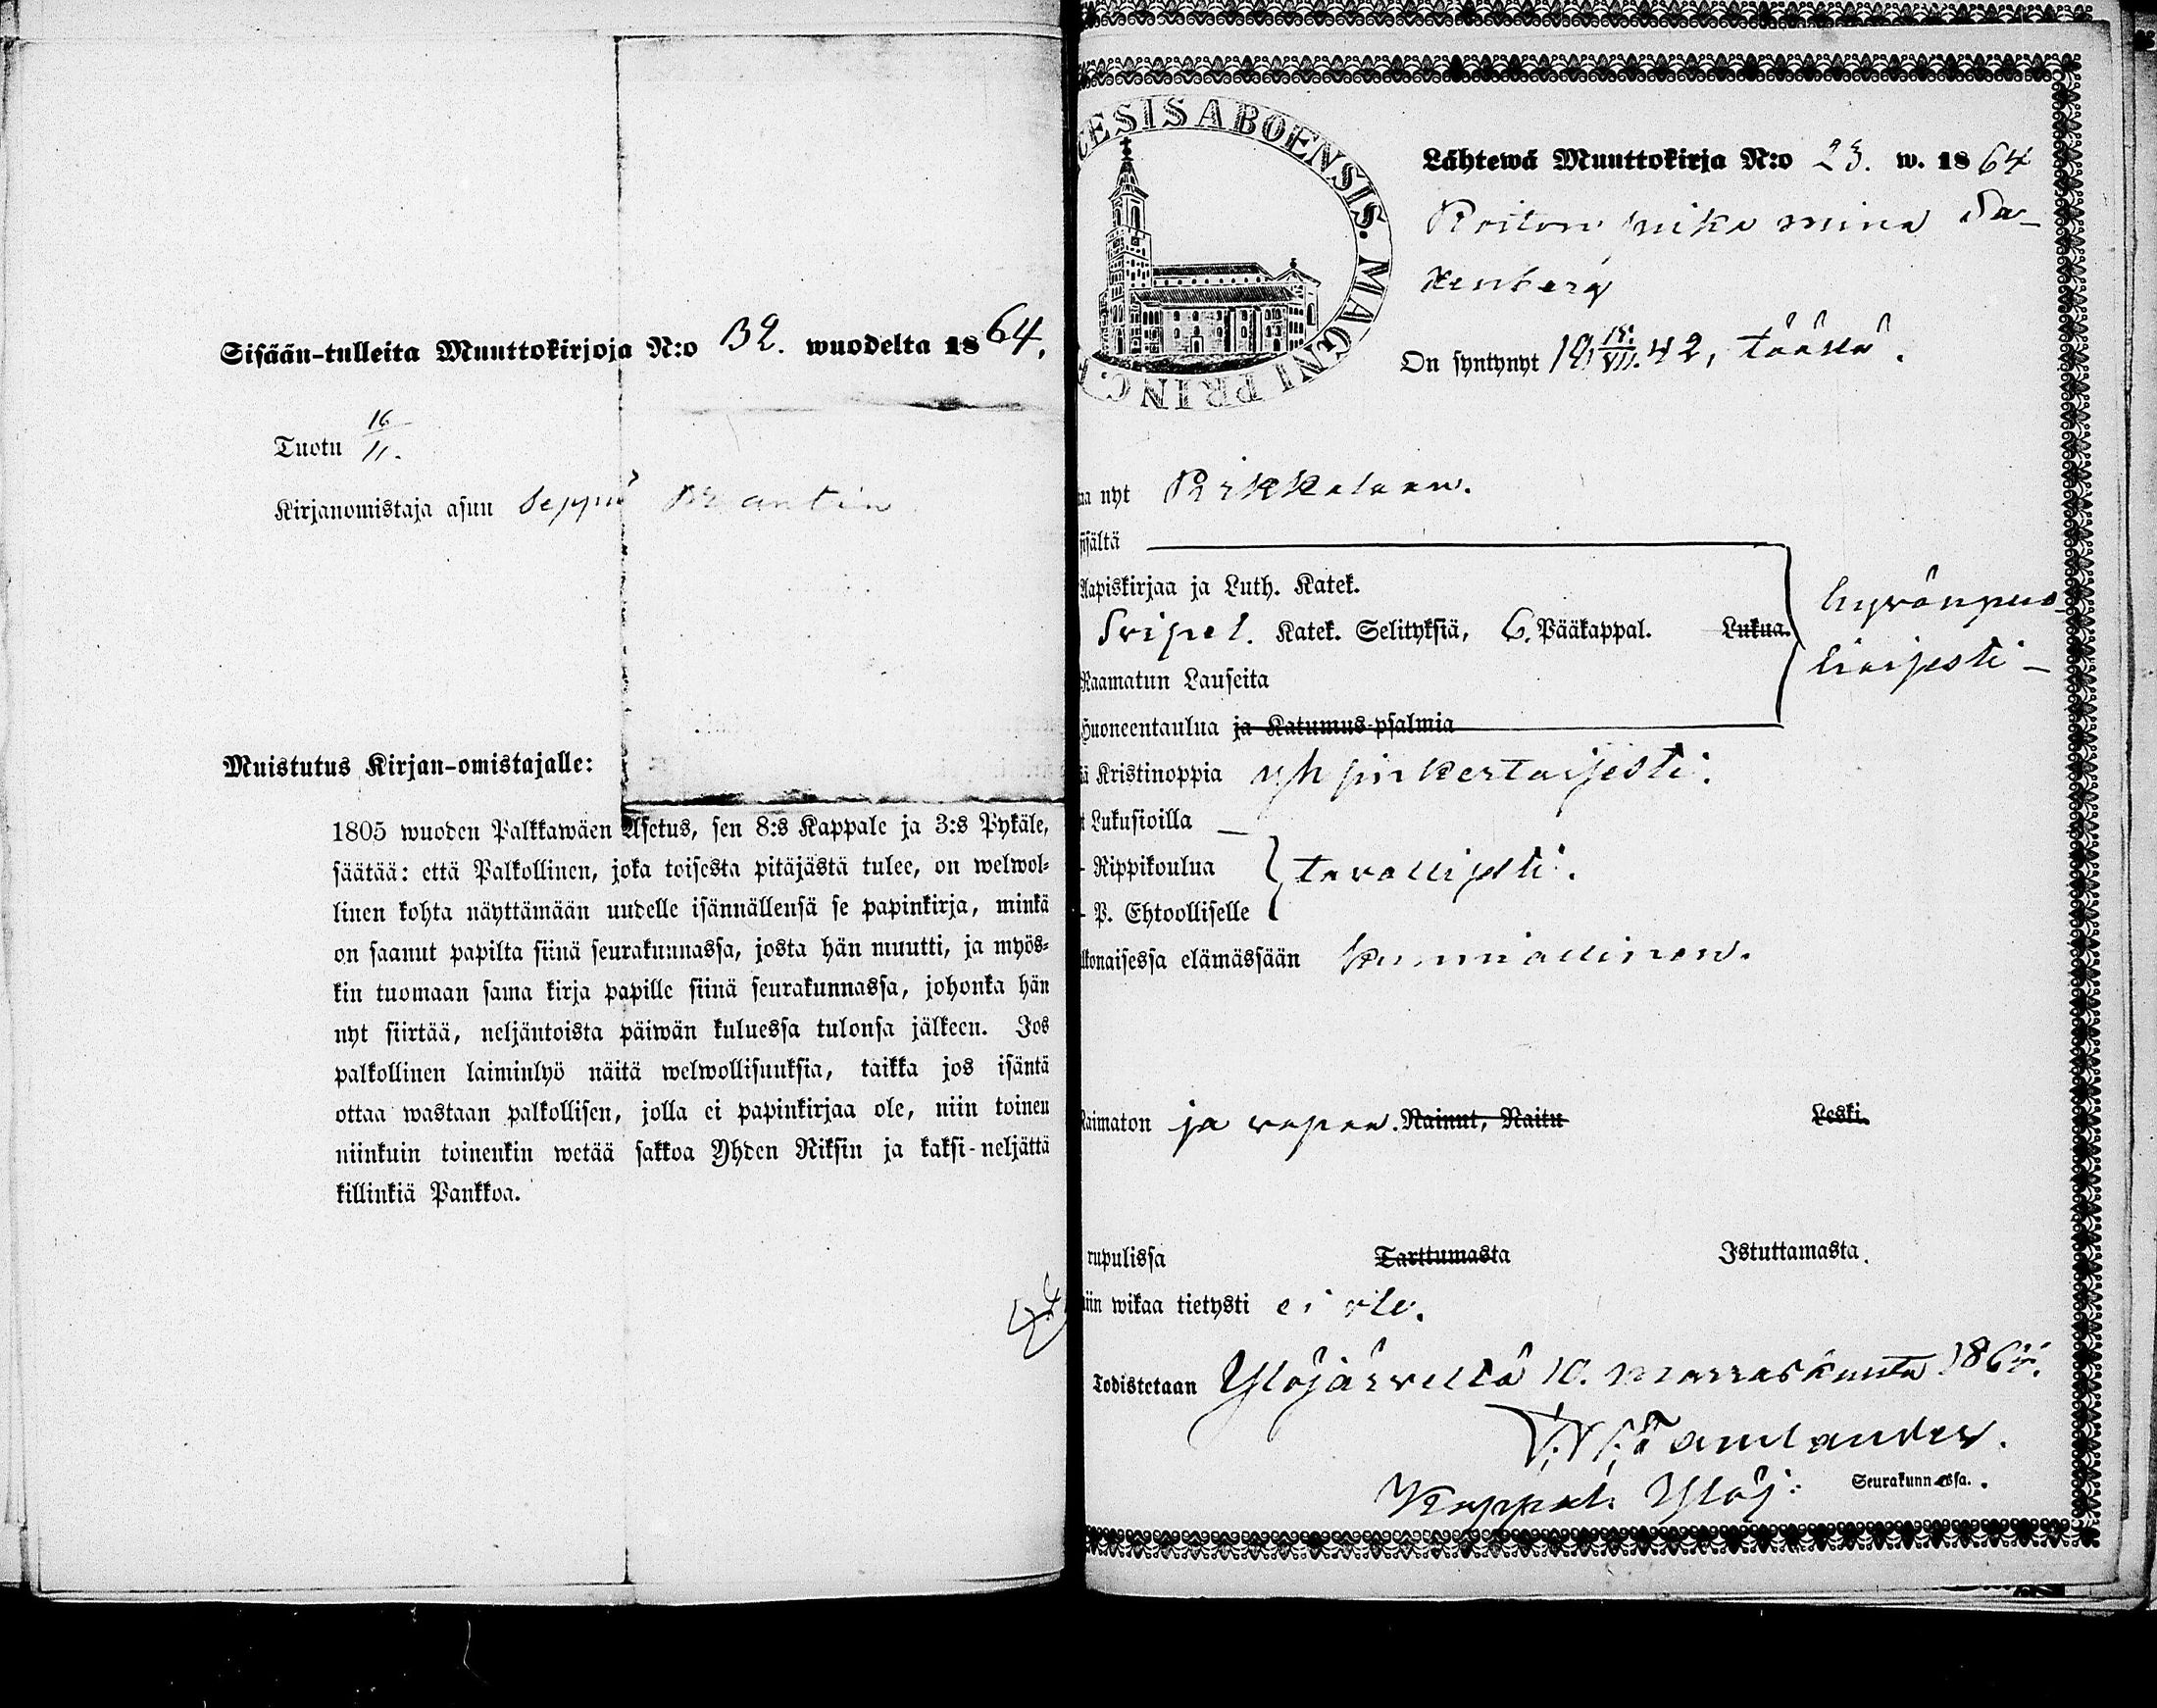 Sisään-tulleita Muuttokirjoja N:o 32. wuodelta 1864.
Tuotu 16/11.
Kirjanomistaja asuu Seppä
Muistutus Kirjan-omistajalle:
1805 wuoden Palkkawäen Asetus, sen 8:s Kappale ja 3:s Pykäle,
säätää: että Palkollinen, joka toisesta pitäjästä tulee, on welwol-
linen kohta näyttämään uudelle isännällensä se papinkirja, minkä
on saanut papilta siinä seurakunnassa, josta hän muutti, ja myös-
kin tuomaan sama kirja papille siinä seurakunnassa, johonka hän
nyt siirtää, neljäntoista päiwän kuluessa tulonsa jälkeen. Jos
palkollinen laiminlyö näitä welwollisuuksia, taikka jos isäntä
ottaa wastaan palkollisen, jolla ei papinkirjaa ole, niin toinen
niinkuin toinenkin wetää sakkoa Yhden Riksin ja kaksi-neljättä
killinkiä Pankkoa.
CESIS ABOENSIS. MAGNI PRINC.
Lähtewä Muuttokirja N:o 23. w. 1864
On syntynyt 18 15/VII. 42, täällä.
na nyt Pirkkalaan.
sisältä
Aapiskirjaa ja Luth. Katek.
Svipel. Katek. Selityksiä, 6. Pääkappal. Lukua.
hyvänpuo-
lisesti
Raamatun Lauseita
Huoneentaulua ja Katumus-psalmia
ä Kristinoppia yhsinkertaisesti.
t Lukusioilla
- Rippikoulua
tavallisesti.
- P. Ehtoolliselle
lkonaisessa elämässään kunniallinen.
Naimaton ja vapaa. Nainut, Naitu Leski.
rupulissa Tarttumasta Istuttamasta.
iin wikaa tietysti ei ole.
Todistetaan Ylöjärvellä 10. marraskuuta 1864.
Kappal. Ylöj: Seurakunnassa.